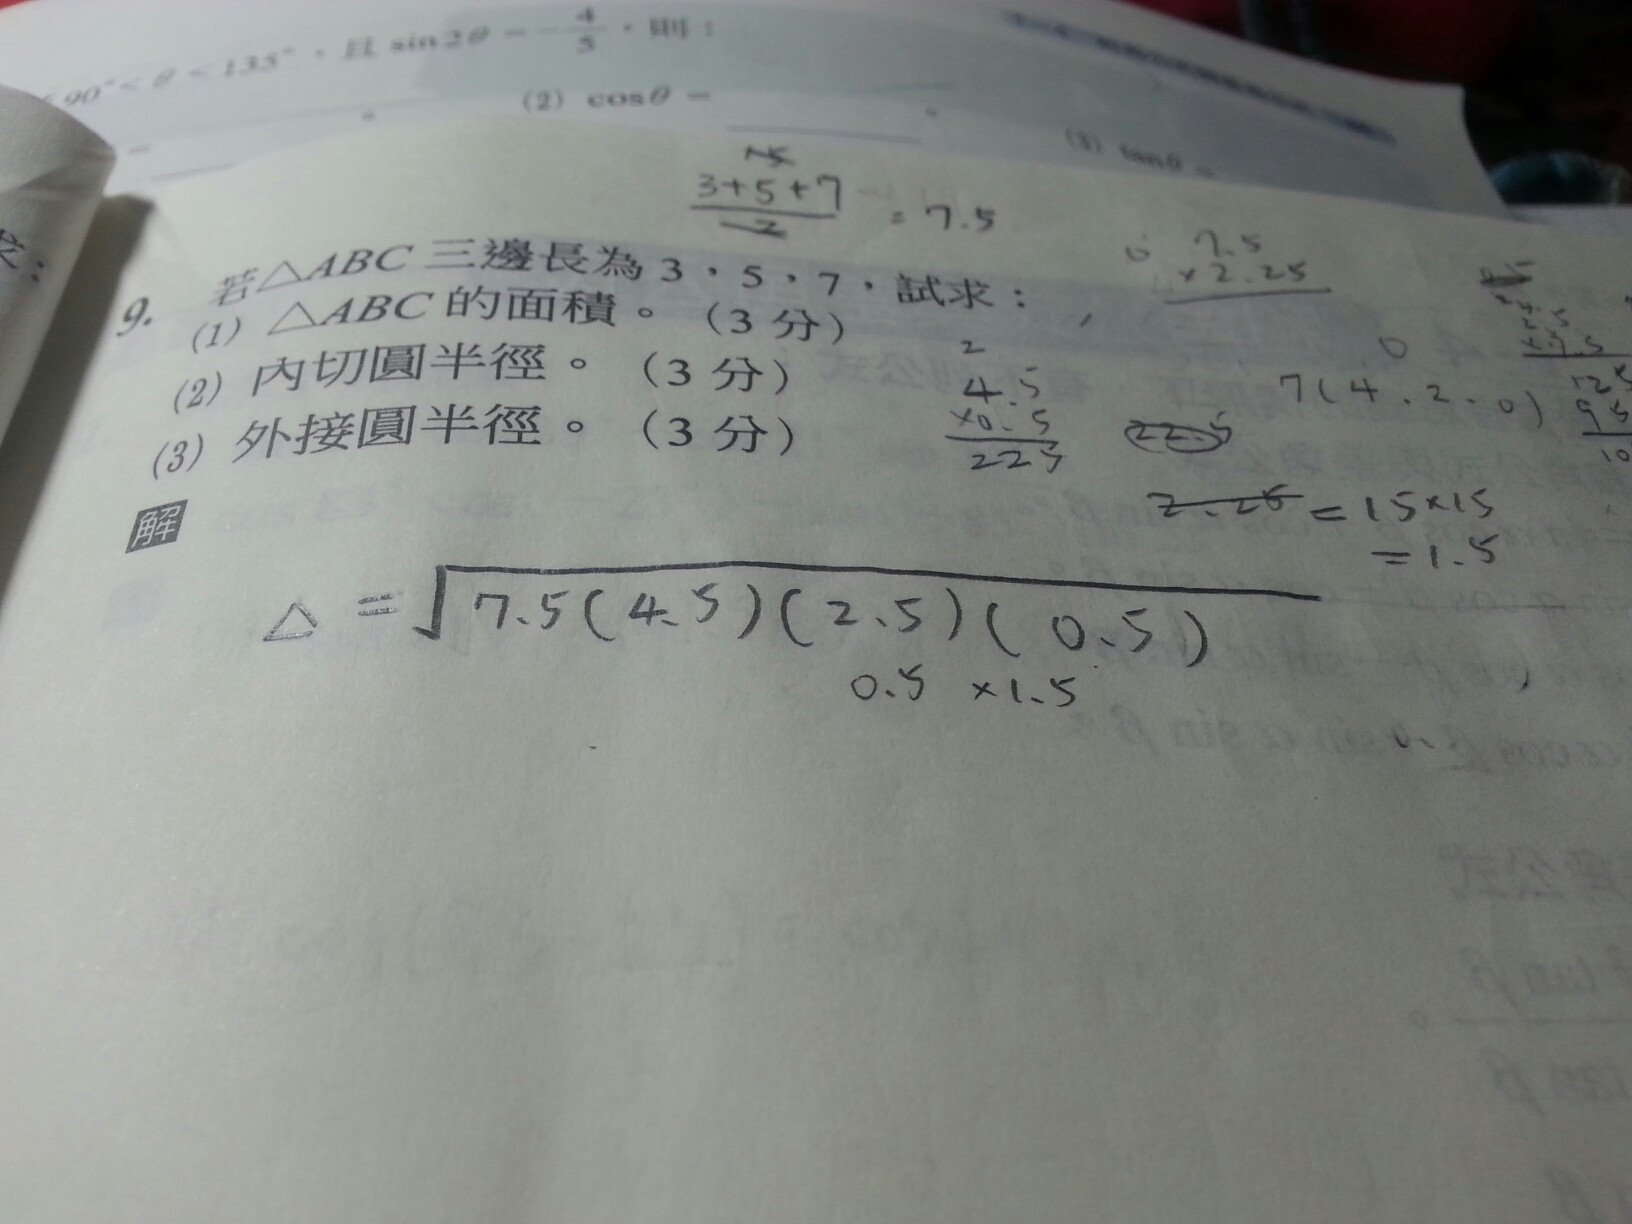 90°＜θ＜135°，且 sin2θ = -4/5，則：
(2) cosθ =
(3) tanθ =
求：
15
3+5+7
2
= 7.5
9. 若△ABC 三邊長為 3，5，7，試求：
(1) △ABC 的面積。（3 分）
(2) 內切圓半徑。（3 分）
(3) 外接圓半徑。（3 分）
7.5
×2.25
2
4.5
×0.5
225
22.5
0
7(4.2.0)
125
10
2.25 = 15×15
= 1.5
解
△ = √7.5(4.5)(2.5)(0.5)
0.5 ×1.5